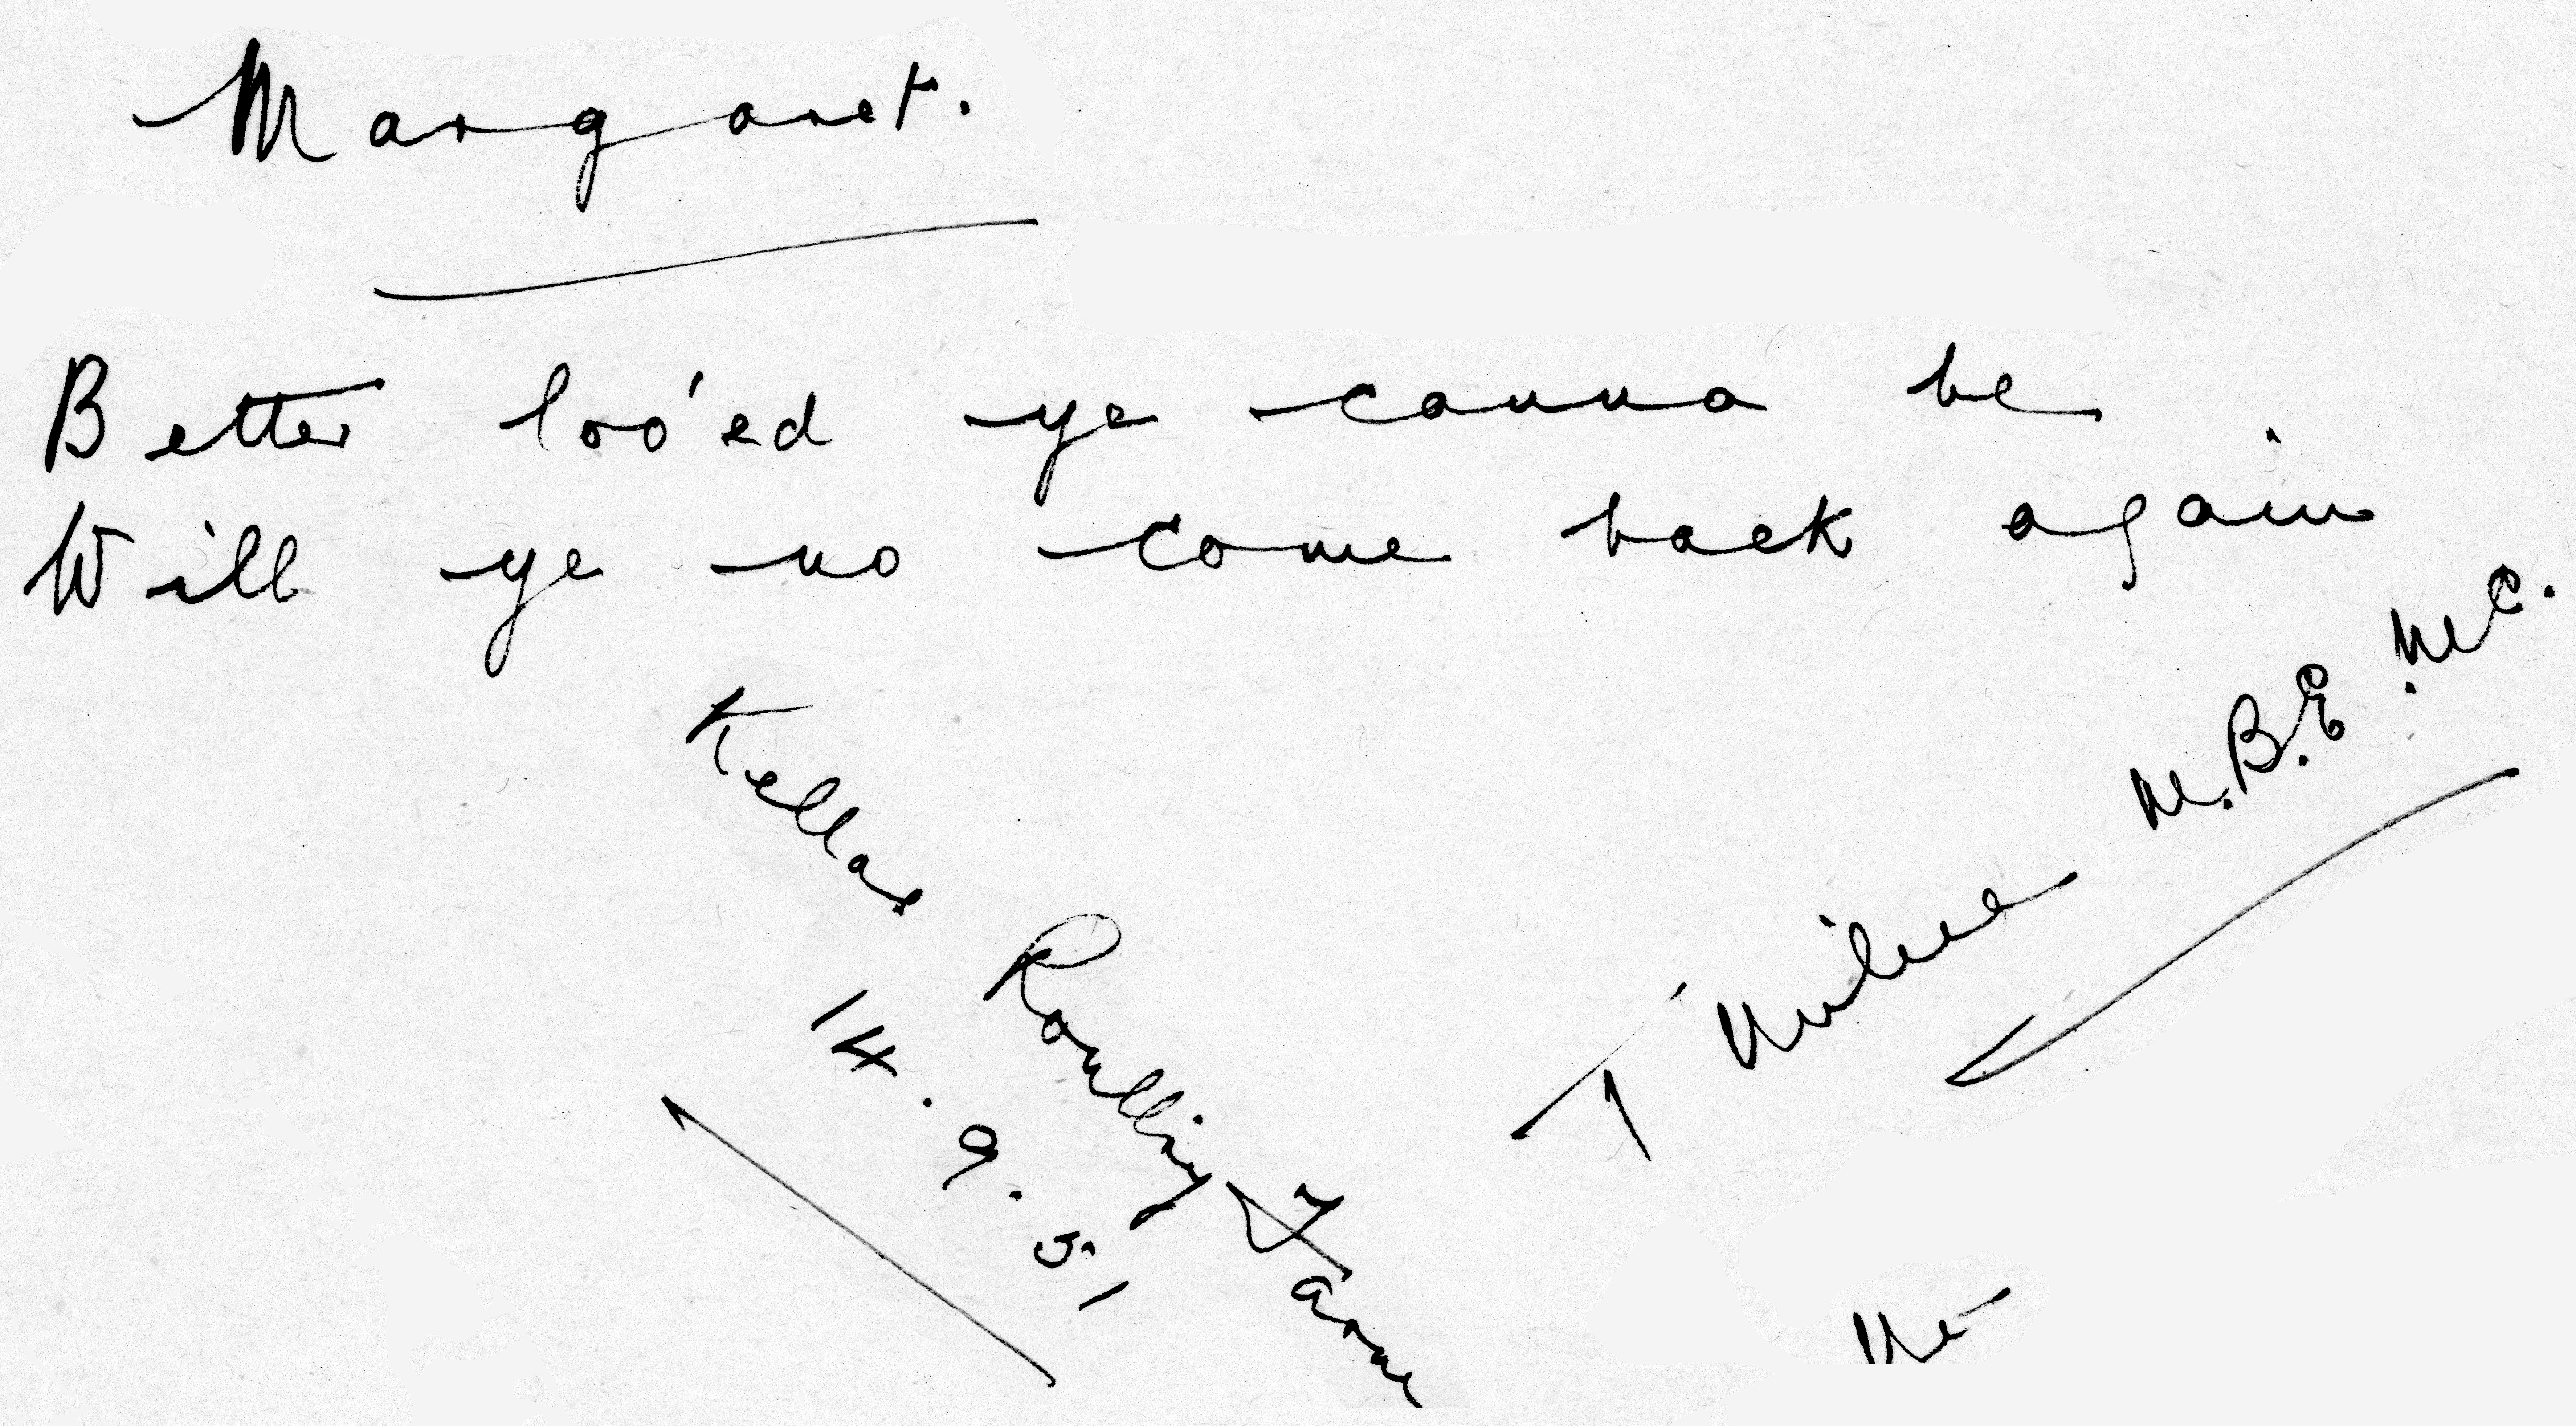 Margaret.
Better loo'ed ye canna be
Will ye no come back again
T Milne M.B.E. M.C.
Kellas
Farm
14.9.51